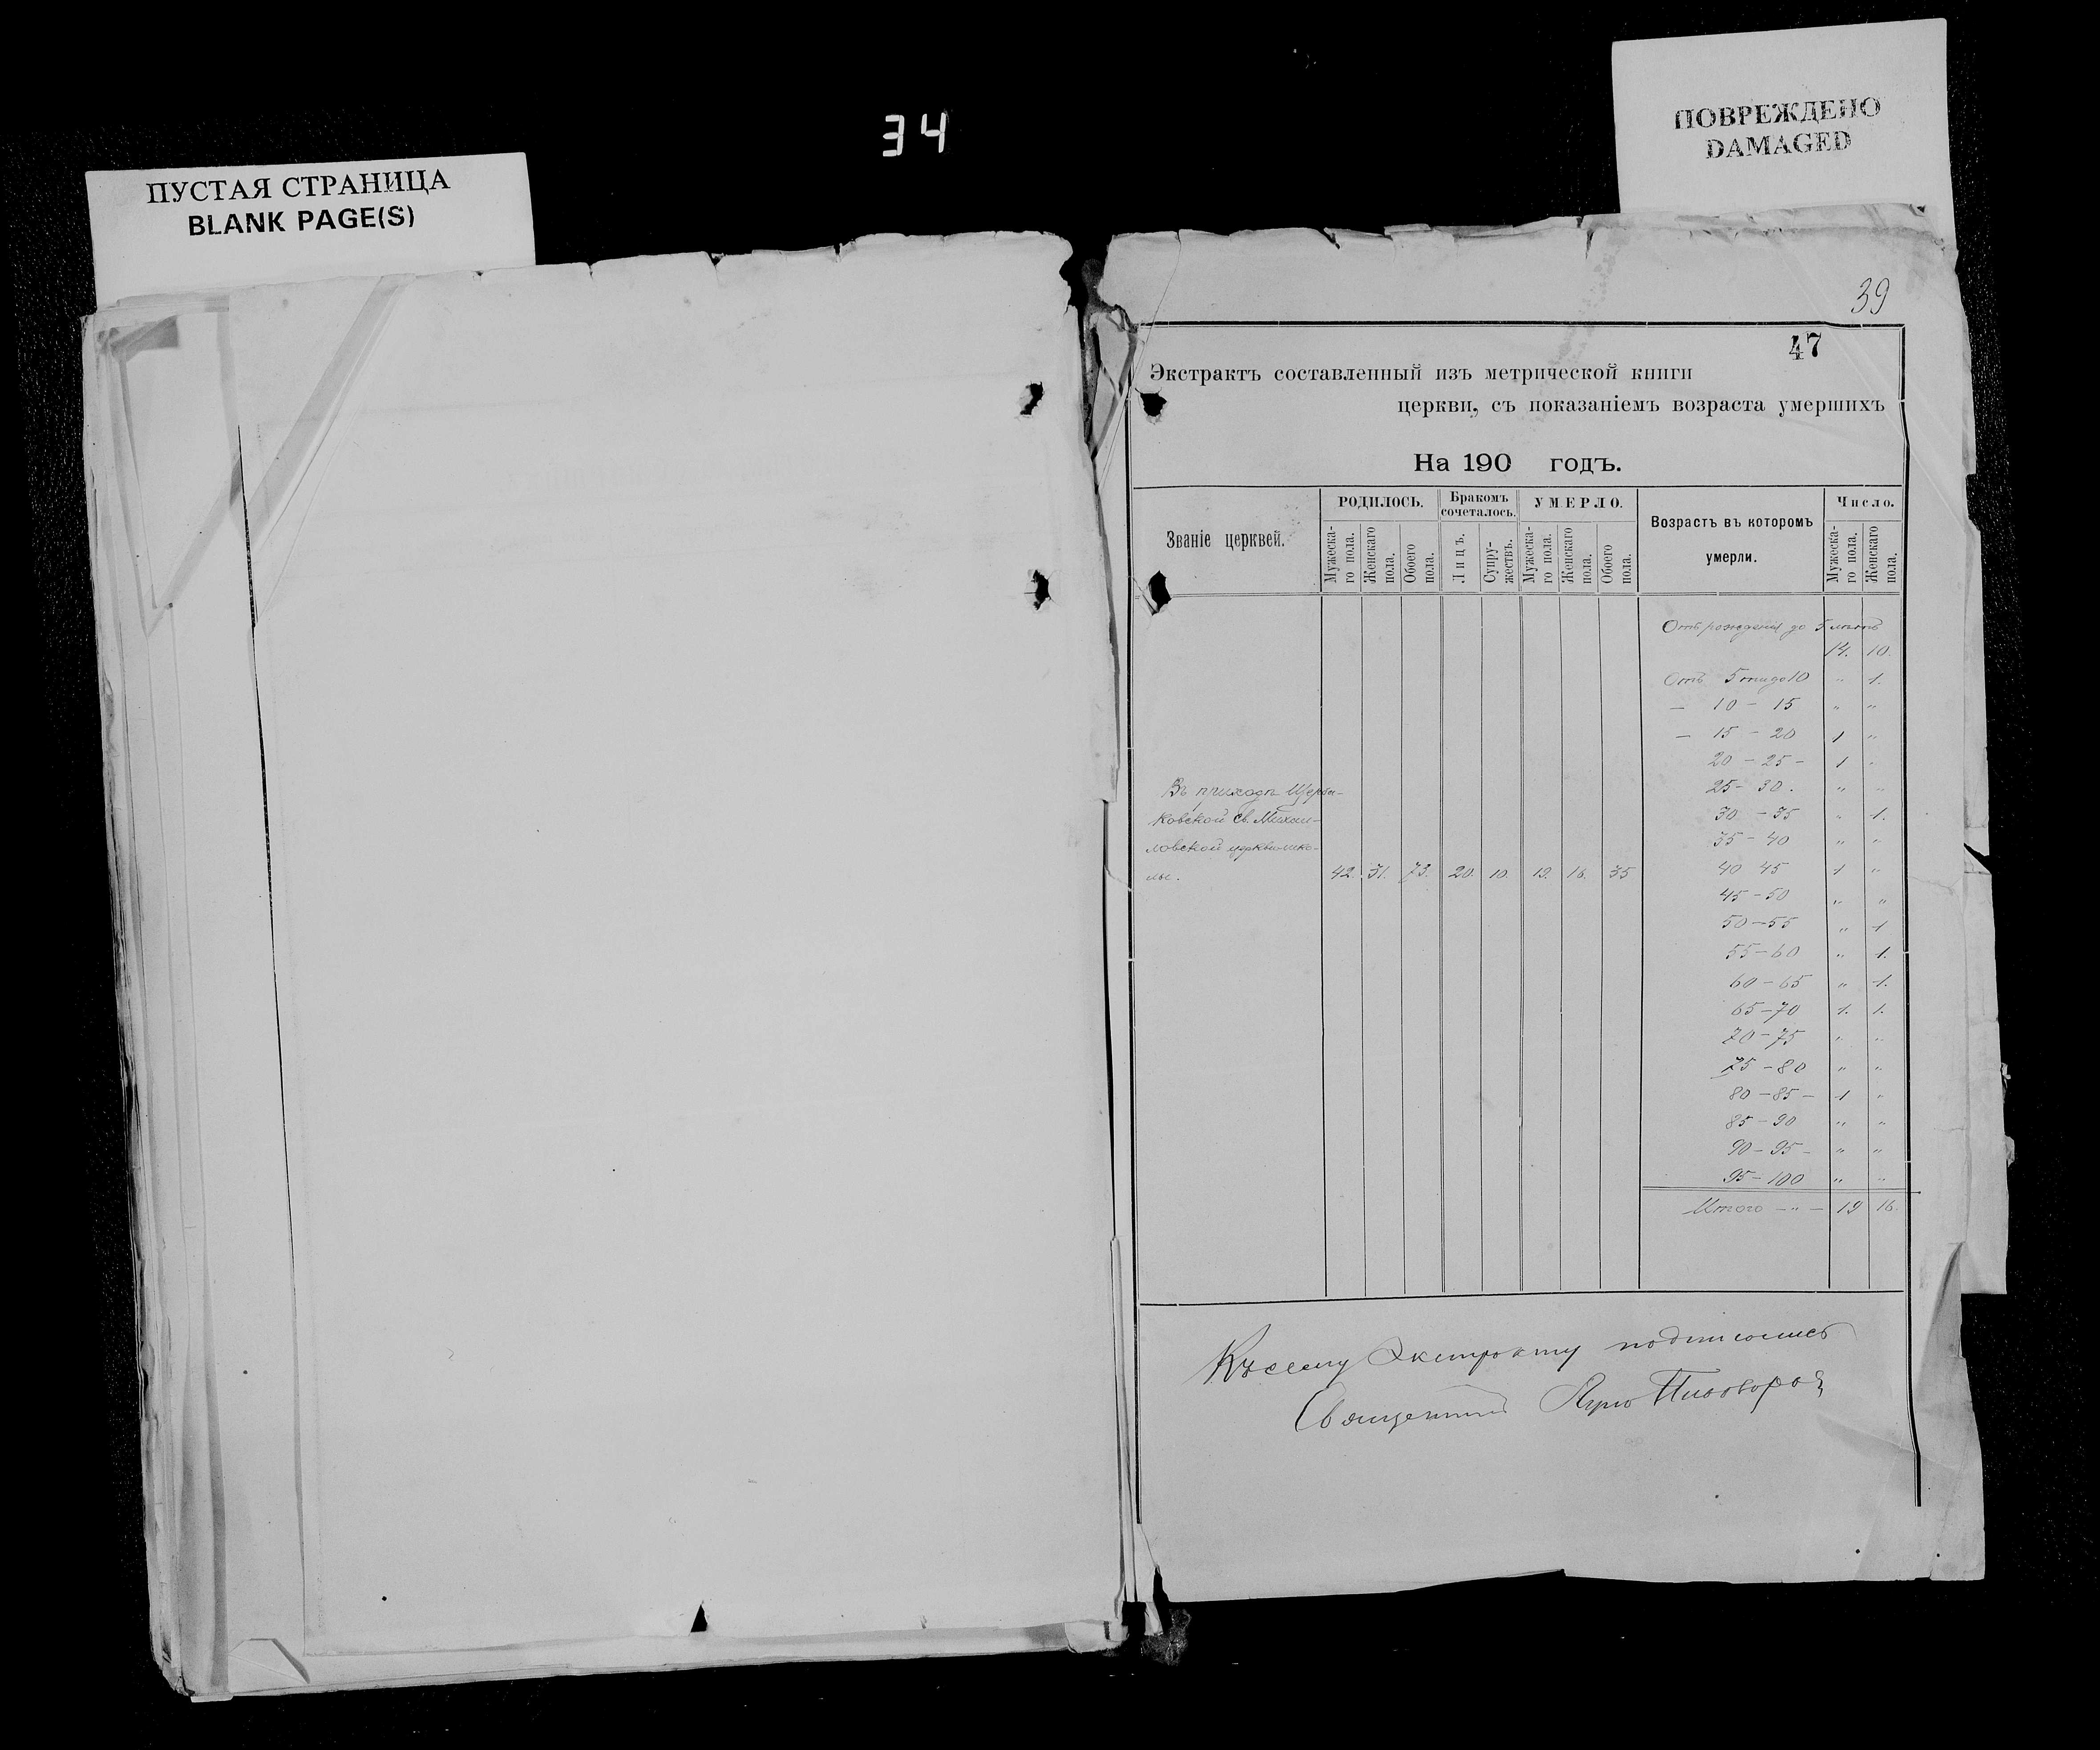 34
ПУСТАЯ СТРАНИЦА
BLANK PAGE(S)
ПОВРЕЖДЕНО
DAMAGED
39
47
Экстрактъ составленный изъ метрической книги
церкви, съ показаніемъ возраста умершихъ
На 190 годъ.
Званіе церквей.
РОДИЛОСЬ.
Мужеска-
го пола.
Женскаго
пола.
Обоего
пола.
Бракомъ
сочеталось.
Лицъ.
Супру-
жествъ.
УМЕРЛО.
Мужеска-
го пола.
Женскаго
пола.
Обоего
пола.
Возрастъ въ которомъ
умерли.
Число.
Мужеска-
го пола.
Женскаго
пола.
Въ приходѣ Щерба-
ковской св. Михаи-
ловской церкви-шко-
лы. 42. 31. 73. 20. 10. 19. 16. 35
Отъ рожденія до 5 лѣтъ
14. 10.
Отъ 5 ти до 10 " 1.
— 10 – 15 " "
— 15 – 20 1 "
20 – 25 – 1 "
25 – 30. " "
30 – 35 " 1.
35 – 40 " "
40 45 1 "
45 – 50 " "
50 – 55 " 1
55 – 60 " 1.
60 – 65 " 1.
65 – 70 1. 1.
70 – 75 " "
75 – 80 " "
80 – 85 – 1 "
85 – 90 " "
90 – 95 – " "
95 – 100 " "
Итого – " – 19 16.
Къ сему экстракту подписались
Священникъ